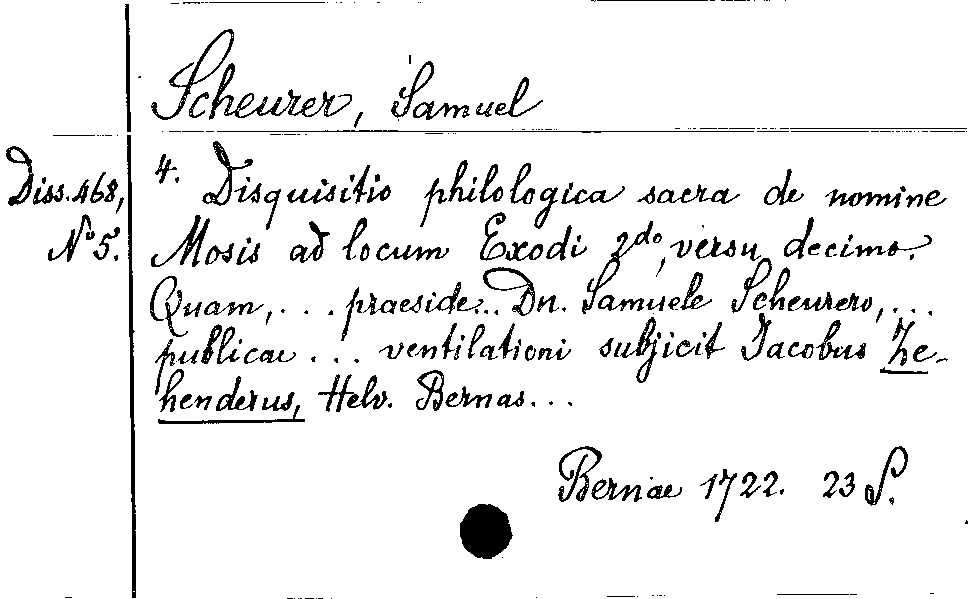 Scheurer, Samuel
Diss. 468,
No 5.
4. Disquisitio philologica sacra de nomine
Mosis ad locum Exodi 2do, versu decimo.
Quam, ... praeside... Dn. Samuele Scheurero, ...
publicae ... ventilationi subjicit Jacobus Ze-
henderus, Helv. Bernas...
Bernae 1722. 23 S.